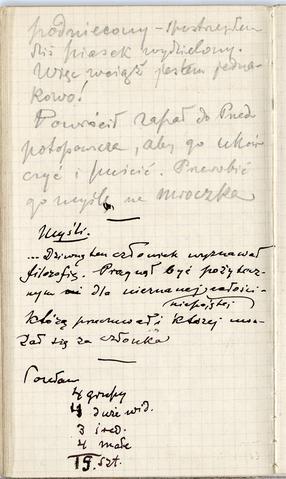 podniecony – spostrzegłem
dziś piasek wydzielony.
Więc wciąż jestem jedna-
kowo!
Powrócił zapał do Przed
potopowcza, aby go ukoń
czyć i puścić. Przerobić
go myślę na mroczka
Myśli.
... Dziwny ten człowiek wyznawał
filozofię. Pragnął być pożytecz-
nym dla nieznanej całości –
niepojętej
którą przeczuwał i której
czał się za członka
4 grupy
4 duże wid.
3 śred.
4 małe
15 szt.